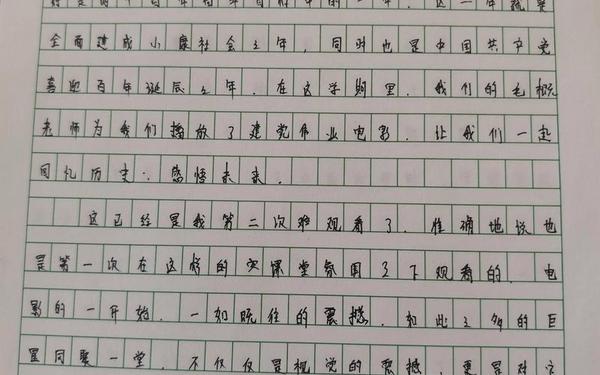 年
全面建成小康社会之年,同时也是中国共产党
喜迎百年诞辰之年,在这学期里,我们的毛概
老师为我们播放了建党伟业电影,让我们一起
回忆历史,感悟未来.
这已经是我第二次观看了.准确地说也
是第一次在这样的课堂氛围之下观看的.电
影的一开始,一如既往的震撼.如此之多的巨
星同聚一堂,不仅仅是视觉的震撼,更是对